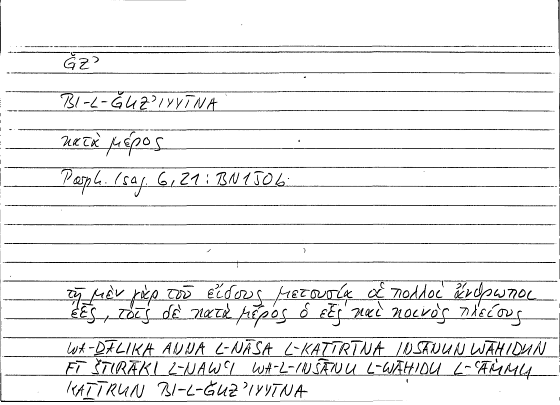 ǦZʾ
BI-L-ǦUZʾIYYĪNA
κατὰ μέρος
Porph. Isag. 6, 21 : BN 150b
τῇ μὲν γὰρ τοῦ εἴδους μετουσίᾳ οἱ πολλοὶ ἄνθρωποι
εἷς, τοῖς δὲ κατὰ μέρος ὁ εἷς καὶ κοινὸς πλείους
WA-ḎĀLIKA ANNA L-NĀSA L-KAṮĪRĪNA INSĀNUN WĀḤIDUN
FĪ ŠTIRĀKI L-NAWʿI WA-L-INSĀNU L-WĀḤIDU L-ʿĀMMU
KAṮĪRUN BI-L-ǦUZʾIYYĪNA